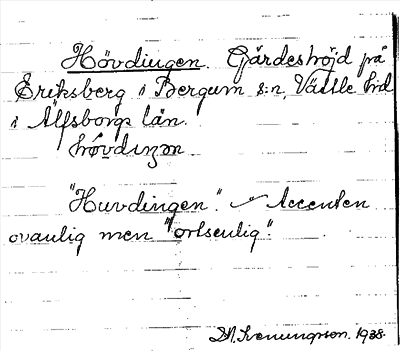 Hövdingen. Gärdeshöjd på
Eriksberg i Bergum s:n, Vättle hd
i Älfsborgs län.
hø̀vdıŋən
"Huvdingen". Accenten
ovanlig men "ortsenlig".
D.N. Svenungsson. 1938.